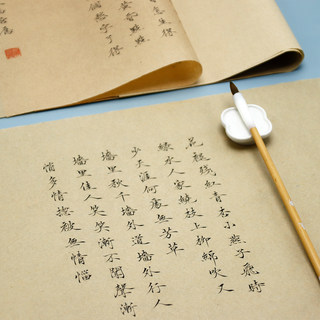 花褪殘紅青杏小燕子飛時
綠水人家繞枝上柳綿吹又
少天涯何處無芳草
墻里秋千墻外道墻外行人
墻里佳人笑笑漸不聞聲漸
悄多情卻被無情惱